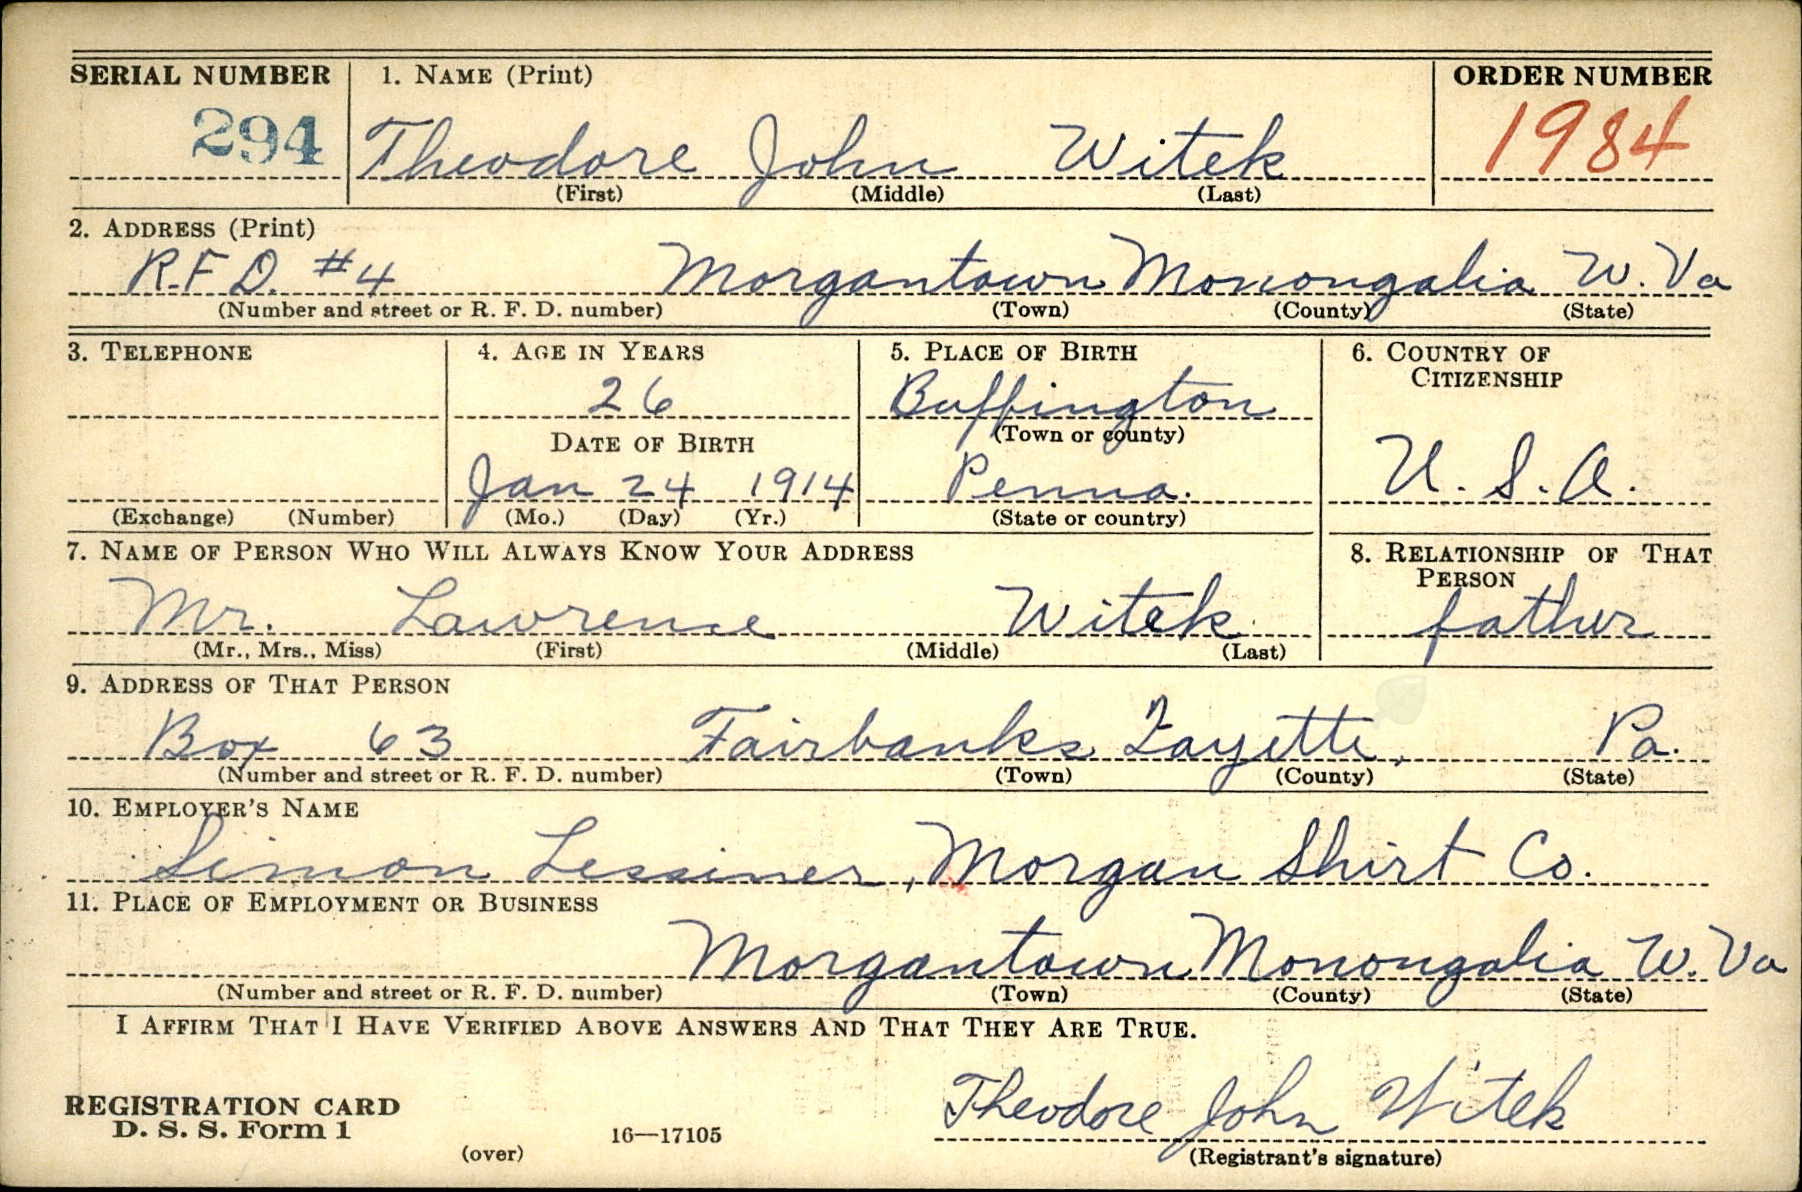 SERIAL NUMBER 1. NAME (Print) ORDER NUMBER
294 Theodore John Witek 1984
(First) (Middle) (Last)
2. ADDRESS (Print)
R.F.D. #4 Morgantown Monongalia W. Va
(Number and street or R. F. D. number) (Town) (County) (State)
3. TELEPHONE 4. AGE IN YEARS 5. PLACE OF BIRTH 6. COUNTRY OF
CITIZENSHIP
26 Buffington
DATE OF BIRTH (Town or county)
Jan 24 1914 Penna. U. S. A.
(Exchange) (Number) (Mo.) (Day) (Yr.) (State or country)
7. NAME OF PERSON WHO WILL ALWAYS KNOW YOUR ADDRESS 8. RELATIONSHIP OF THAT
PERSON
Mr. Lawrence Witek father
(Mr., Mrs., Miss) (First) (Middle) (Last)
9. ADDRESS OF THAT PERSON
Box 63 Fairbanks Fayette, Pa.
(Number and street or R. F. D. number) (Town) (County) (State)
10. EMPLOYER'S NAME
Simon Lessiner, Morgan Shirt Co.
11. PLACE OF EMPLOYMENT OR BUSINESS
Morgantown Monongalia W. Va
(Number and street or R. F. D. number) (Town) (County) (State)
I AFFIRM THAT I HAVE VERIFIED ABOVE ANSWERS AND THAT THEY ARE TRUE.
Theodore John Witek
REGISTRATION CARD
D. S. S. Form 1
(over) 16—17105 (Registrant's signature)